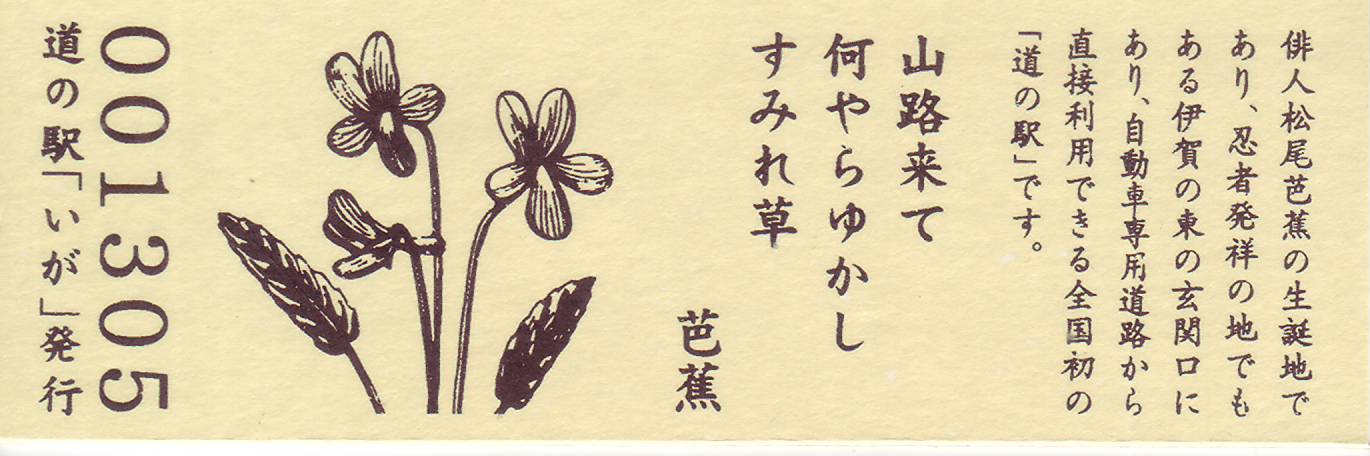 俳人松尾芭蕉の生誕地で
あり、忍者発祥の地でも
ある伊賀の東の玄関口に
あり、自動車専用道路から
直接利用できる全国初の
「道の駅」です。
山路来て
何やらゆかし
すみれ草
芭蕉
001305
道の駅「いが」発行